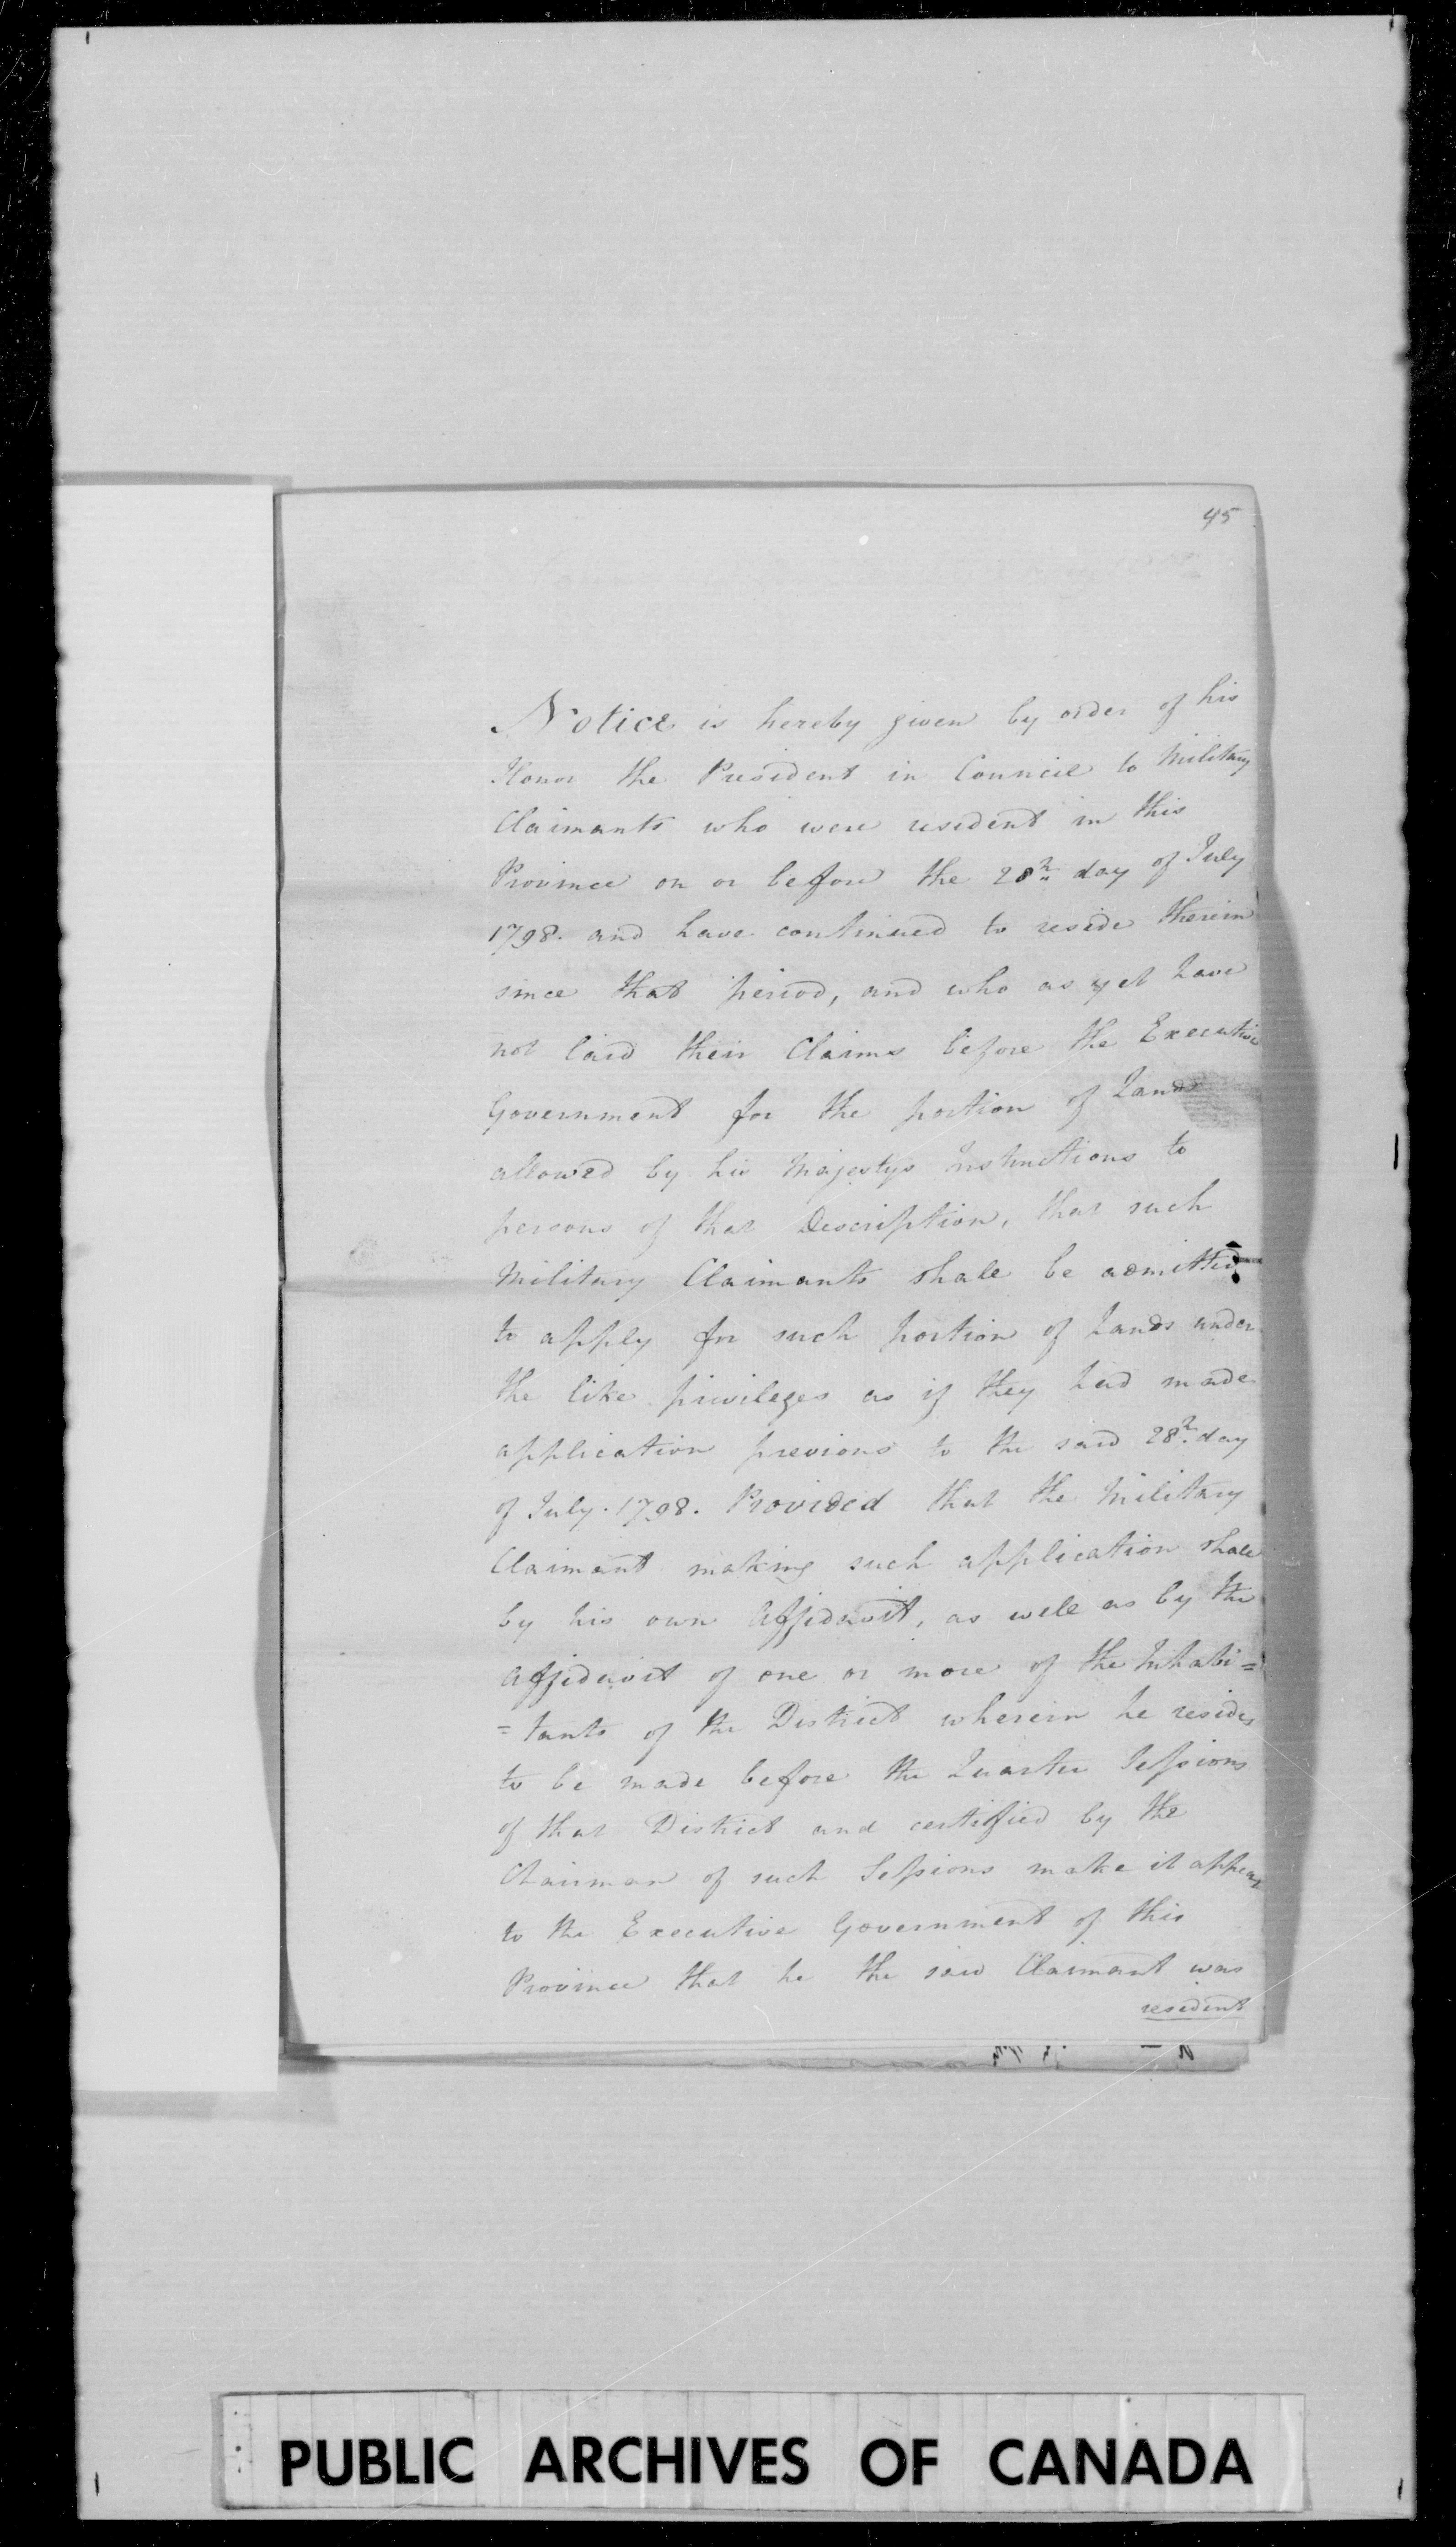 45
Notice is hereby given by order of his
Honor the President in Council to Military
Claimants who were resident in this
Province on or before the 28th day of July
1798. and have continued to reside therein
since that period, and who as yet have
not laid their Claims before the Executive
Government for the portion of Lands
allowed by his Majestys Instructions to
persons of that Description, that such
Military Claimants shall be admitted
to apply for such portion of Lands under
the like privileges as if they had made
application previous to the said 28th day
of July. 1798. Provided that the Military
Claimant making such application shall
by his own Affidavit, as well as by the
Affidavit of one or more of the Inhabi=
=tants of the District wherein he resides
to be made before the Quarter Sessions
of that District and certified by the
Chairman of such Sessions make it appear
to the Executive Government of this
Province that he the said Claimant was
resident
PUBLIC ARCHIVES OF CANADA